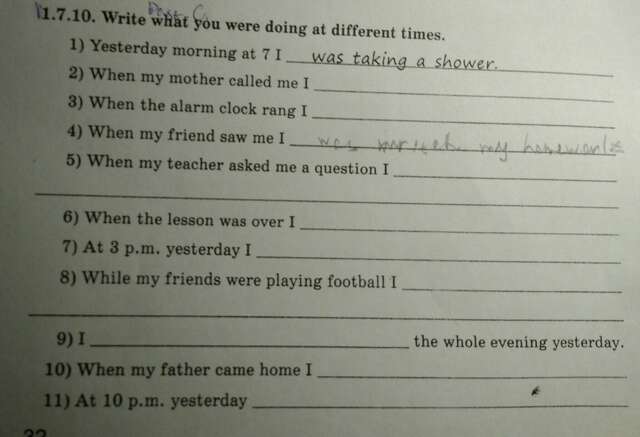 1.7.10. Write what you were doing at different times.
1) Yesterday morning at 7 I was taking a shower.
2) When my mother called me I
3) When the alarm clock rang I
4) When my friend saw me I was my homework
5) When my teacher asked me a question I
6) When the lesson was over I
7) At 3 p.m. yesterday I
8) While my friends were playing football I
9) I the whole evening yesterday.
10) When my father came home I
11) At 10 p.m. yesterday
32